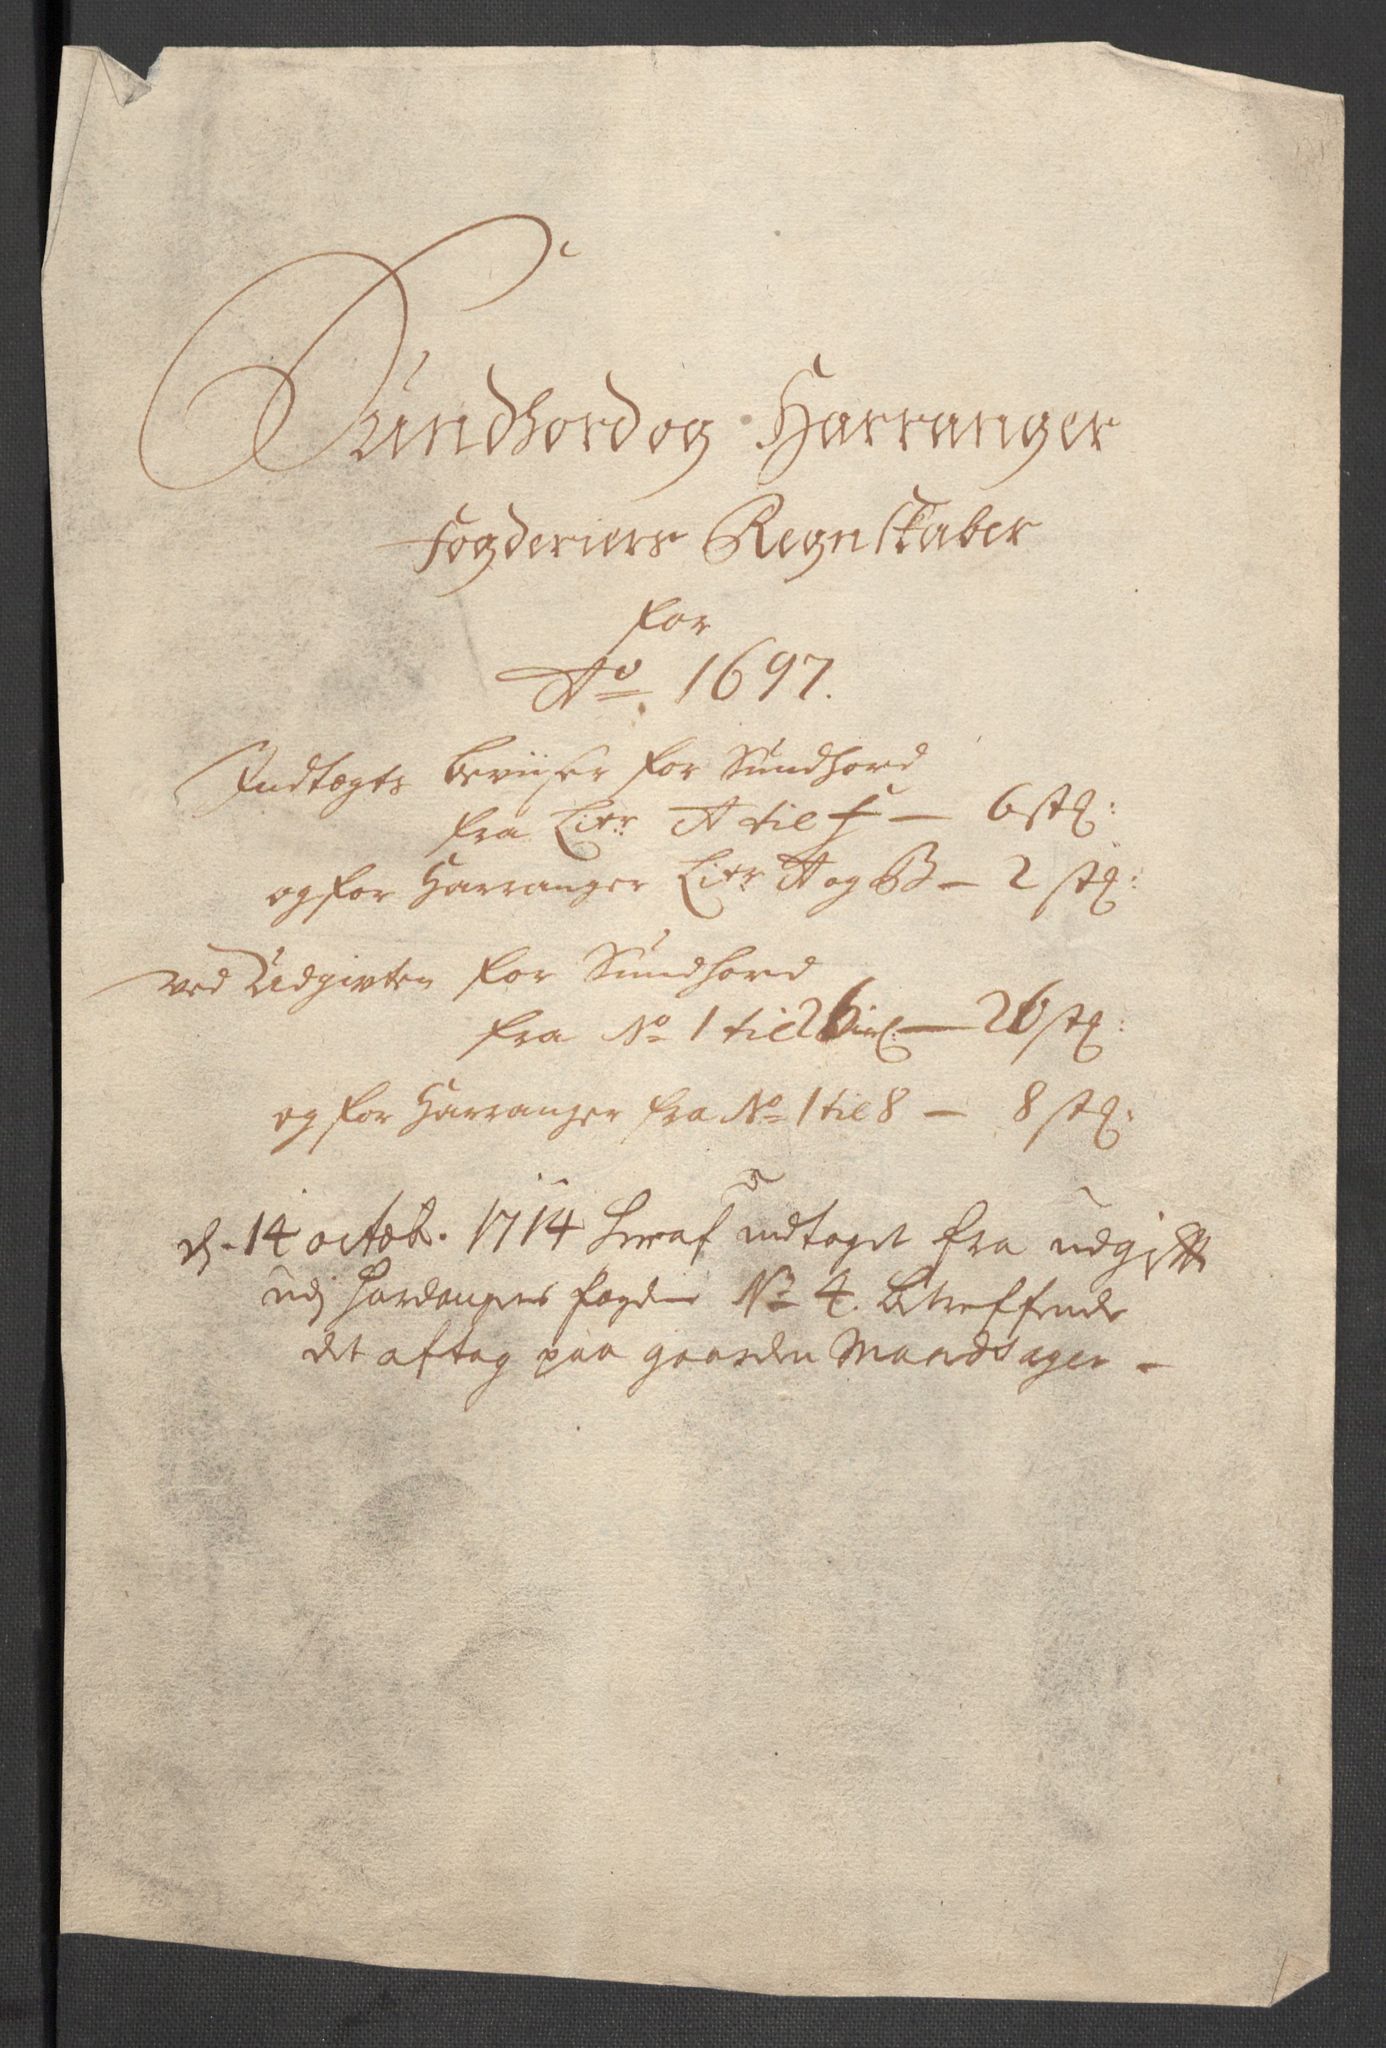 Sundhord og Harranger
Fogderiers Regnskaber
for
Ao. 1697.
Indtægts beviiser for Sundhord
fra Litr A til f — 6 stk:
og for Harranger Litr A og B — 2 stk:
ved Udgivten for Sundhord
fra No 1 til 26 incl. — 26 stk:
og for Harranger fra No 1 til 8 — 8 stk:
d. 14 octob. 1714 heraf udtaget fra udgifft
udj Hardangers fogderie No 4. betreffende
det aftag paa gaarden Mandsager —